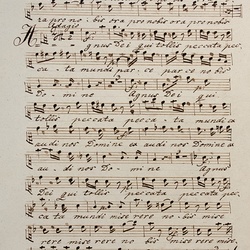 ra pro no bis ora pro nobis ora pro nobis
Adagio
Agnus Dei qui tollis peccata pec
ca ta mundi par ce par ce no bis
Do mi ne Agnus Dei qui
tollis peccata pecca ta mundi ex
audi nos Domine ex audi nos Domine ex
au di nos Do mi ne Agnus
Dei qui tollis peccata peccata pec
ca ta mundi mise rere no bis mise
rere mise rere no bis mise rere mise